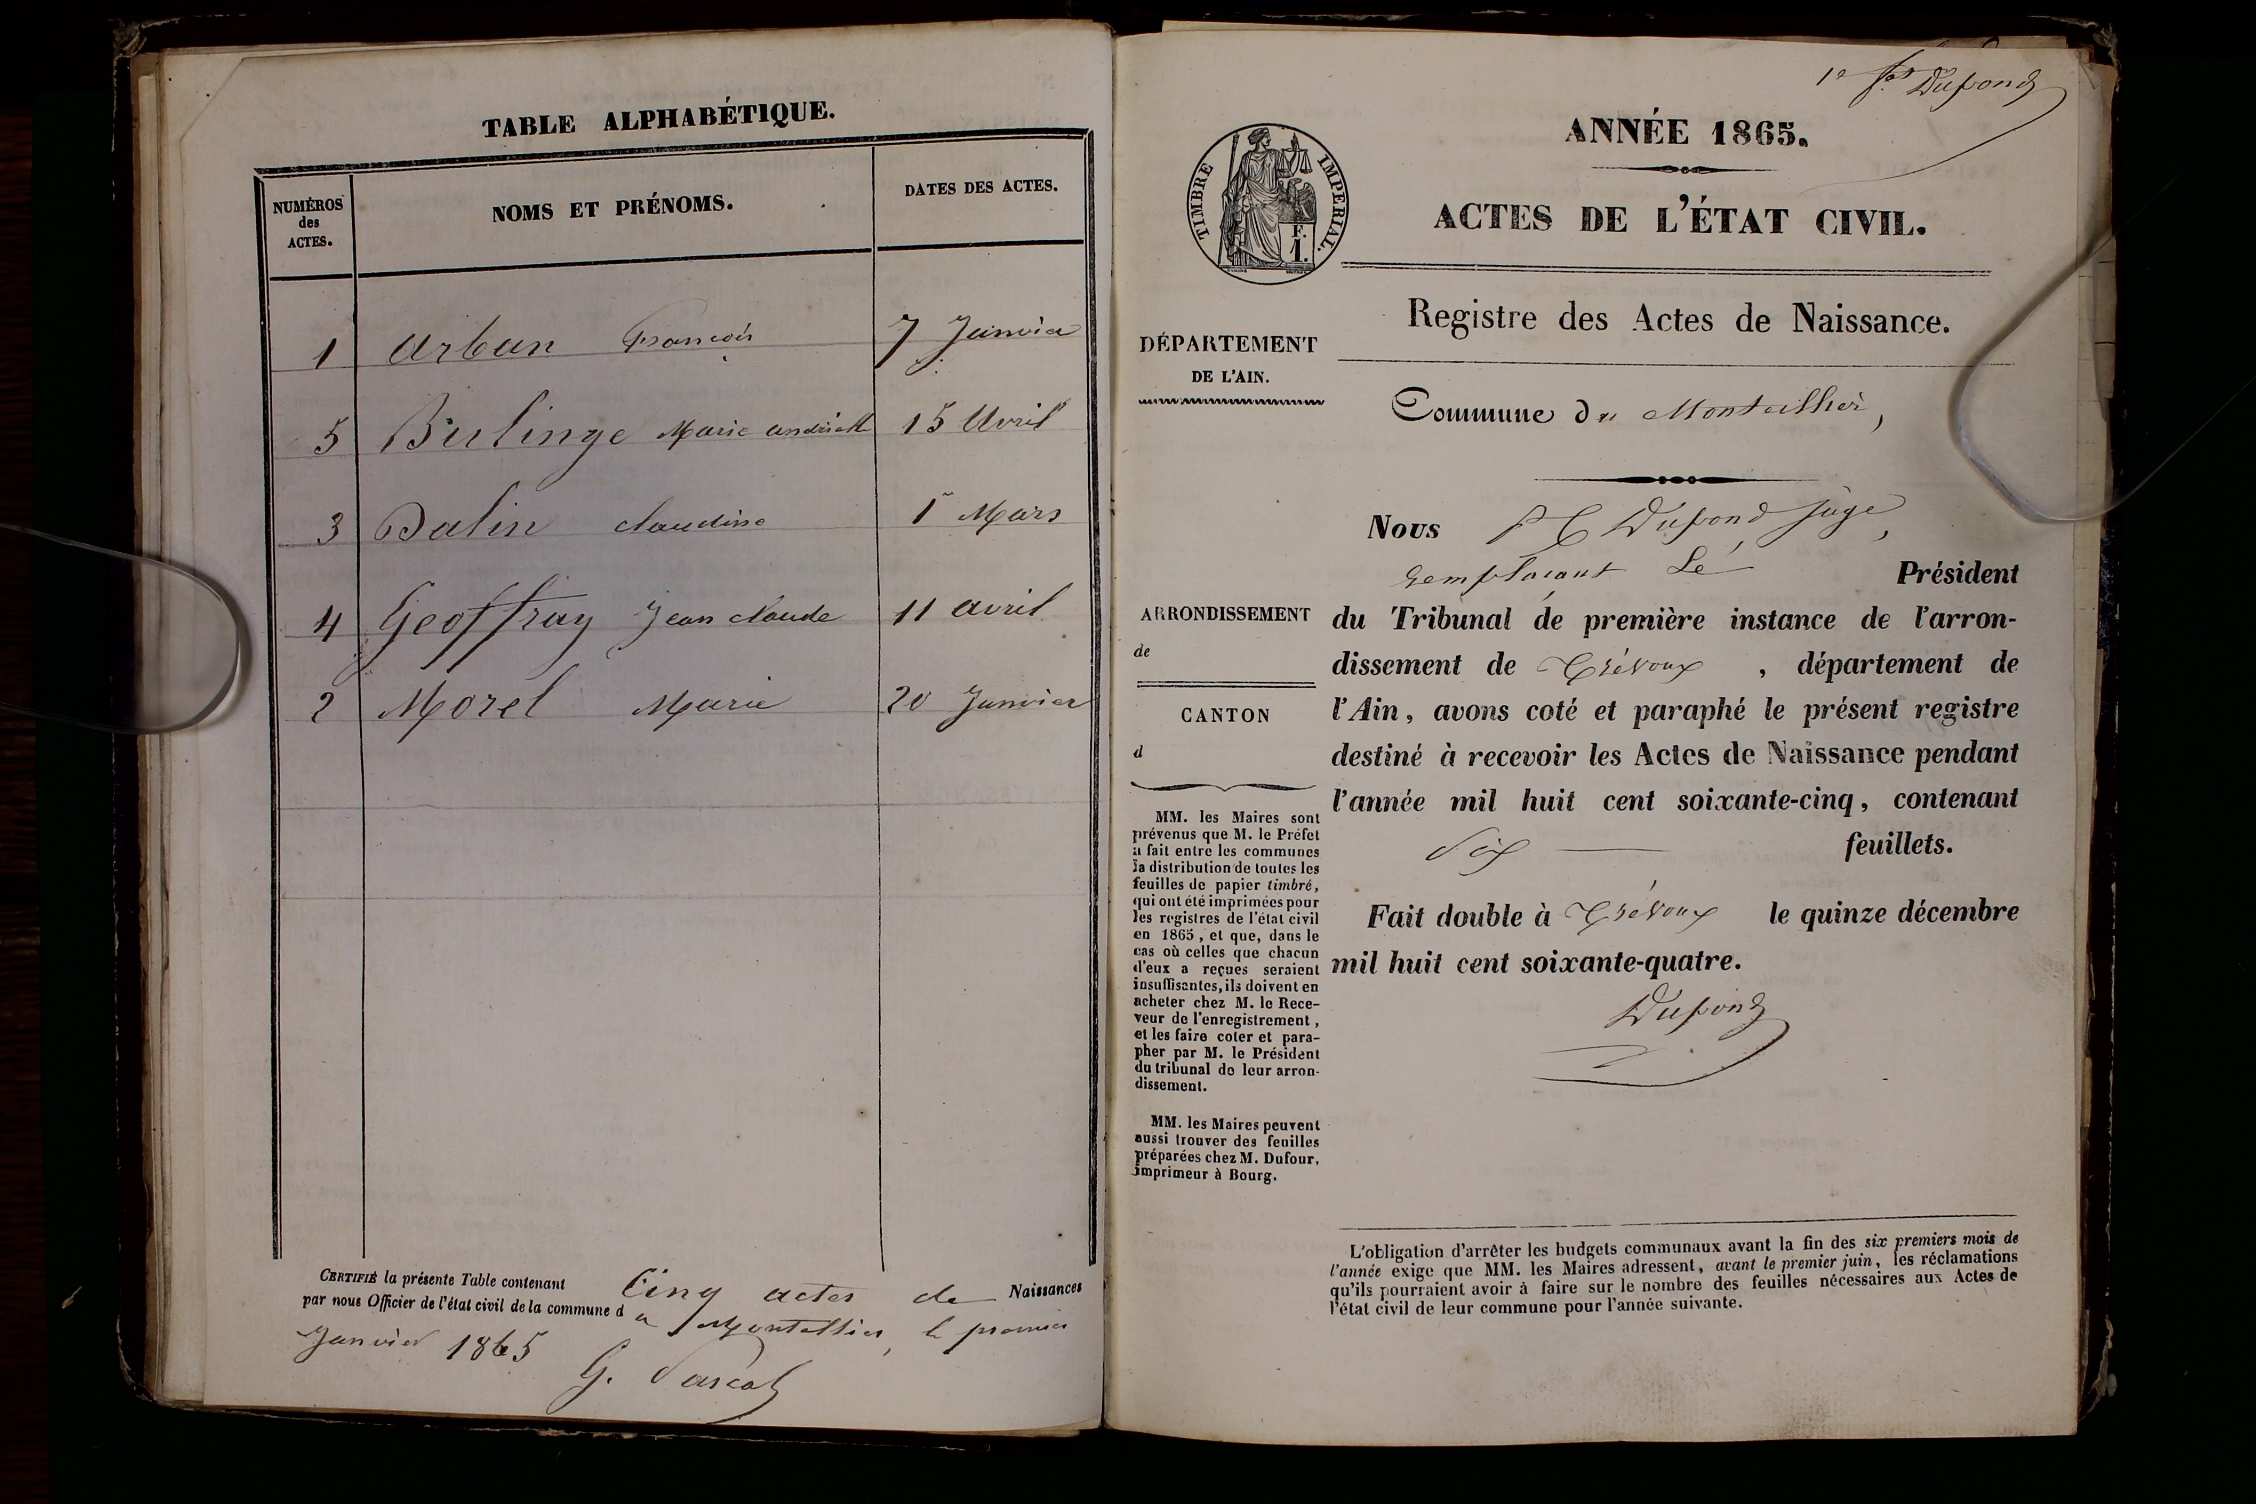 TABLE ALPHABÉTIQUE.
NUMÉROS des ACTES.
NOMS ET PRÉNOMS.
DATES DES ACTES.
1 Arban François 7 Janvier
5 Bulinge Marie 15 Avril
3 Dalin Claudine 1er Mars
4 Geoffray Jean Claude 11 avril
2 Morel Marie 20 Janvier
CERTIFIÉ la présente Table contenant Cinq actes de Naissances
par nous Officier de l'état civil de la commune d le premier
Janvier 1865
G. Pascal
1er fet Dupond
ANNÉE 1865.
ACTES DE L'ÉTAT CIVIL.
TIMBRE IMPERIAL.
F.
1.
Registre des Actes de Naissance.
DÉPARTEMENT
DE L'AIN.
Commune du Montellier,
Nous Dupond juge,
remplaçant Le Président
du Tribunal de première instance de l'arron-
dissement de Trévoux, département de
l'Ain, avons coté et paraphé le présent registre
destiné à recevoir les Actes de Naissance pendant
l'année mil huit cent soixante-cinq, contenant
Six feuillets.
Fait double à Trévoux le quinze décembre
mil huit cent soixante-quatre.
Dupond
ARRONDISSEMENT
de
CANTON
d
MM. les Maires sont
prévenus que M. le Préfet
a fait entre les communes
la distribution de toutes les
feuilles de papier timbré,
qui ont été imprimées pour
les registres de l'état civil
en 1865, et que, dans le
cas où celles que chacun
d'eux a reçues seraient
insuffisantes, ils doivent en
acheter chez M. le Rece-
veur de l'enregistrement,
et les faire coter et para-
pher par M. le Président
du tribunal de leur arron-
dissement.
MM. les Maires peuvent
aussi trouver des feuilles
préparées chez M. Dufour,
imprimeur à Bourg.
L'obligation d'arrêter les budgets communaux avant la fin des six premiers mois de
l'année exige que MM. les Maires adressent, avant le premier juin, les réclamations
qu'ils pourraient avoir à faire sur le nombre des feuilles nécessaires aux Actes de
l'état civil de leur commune pour l'année suivante.